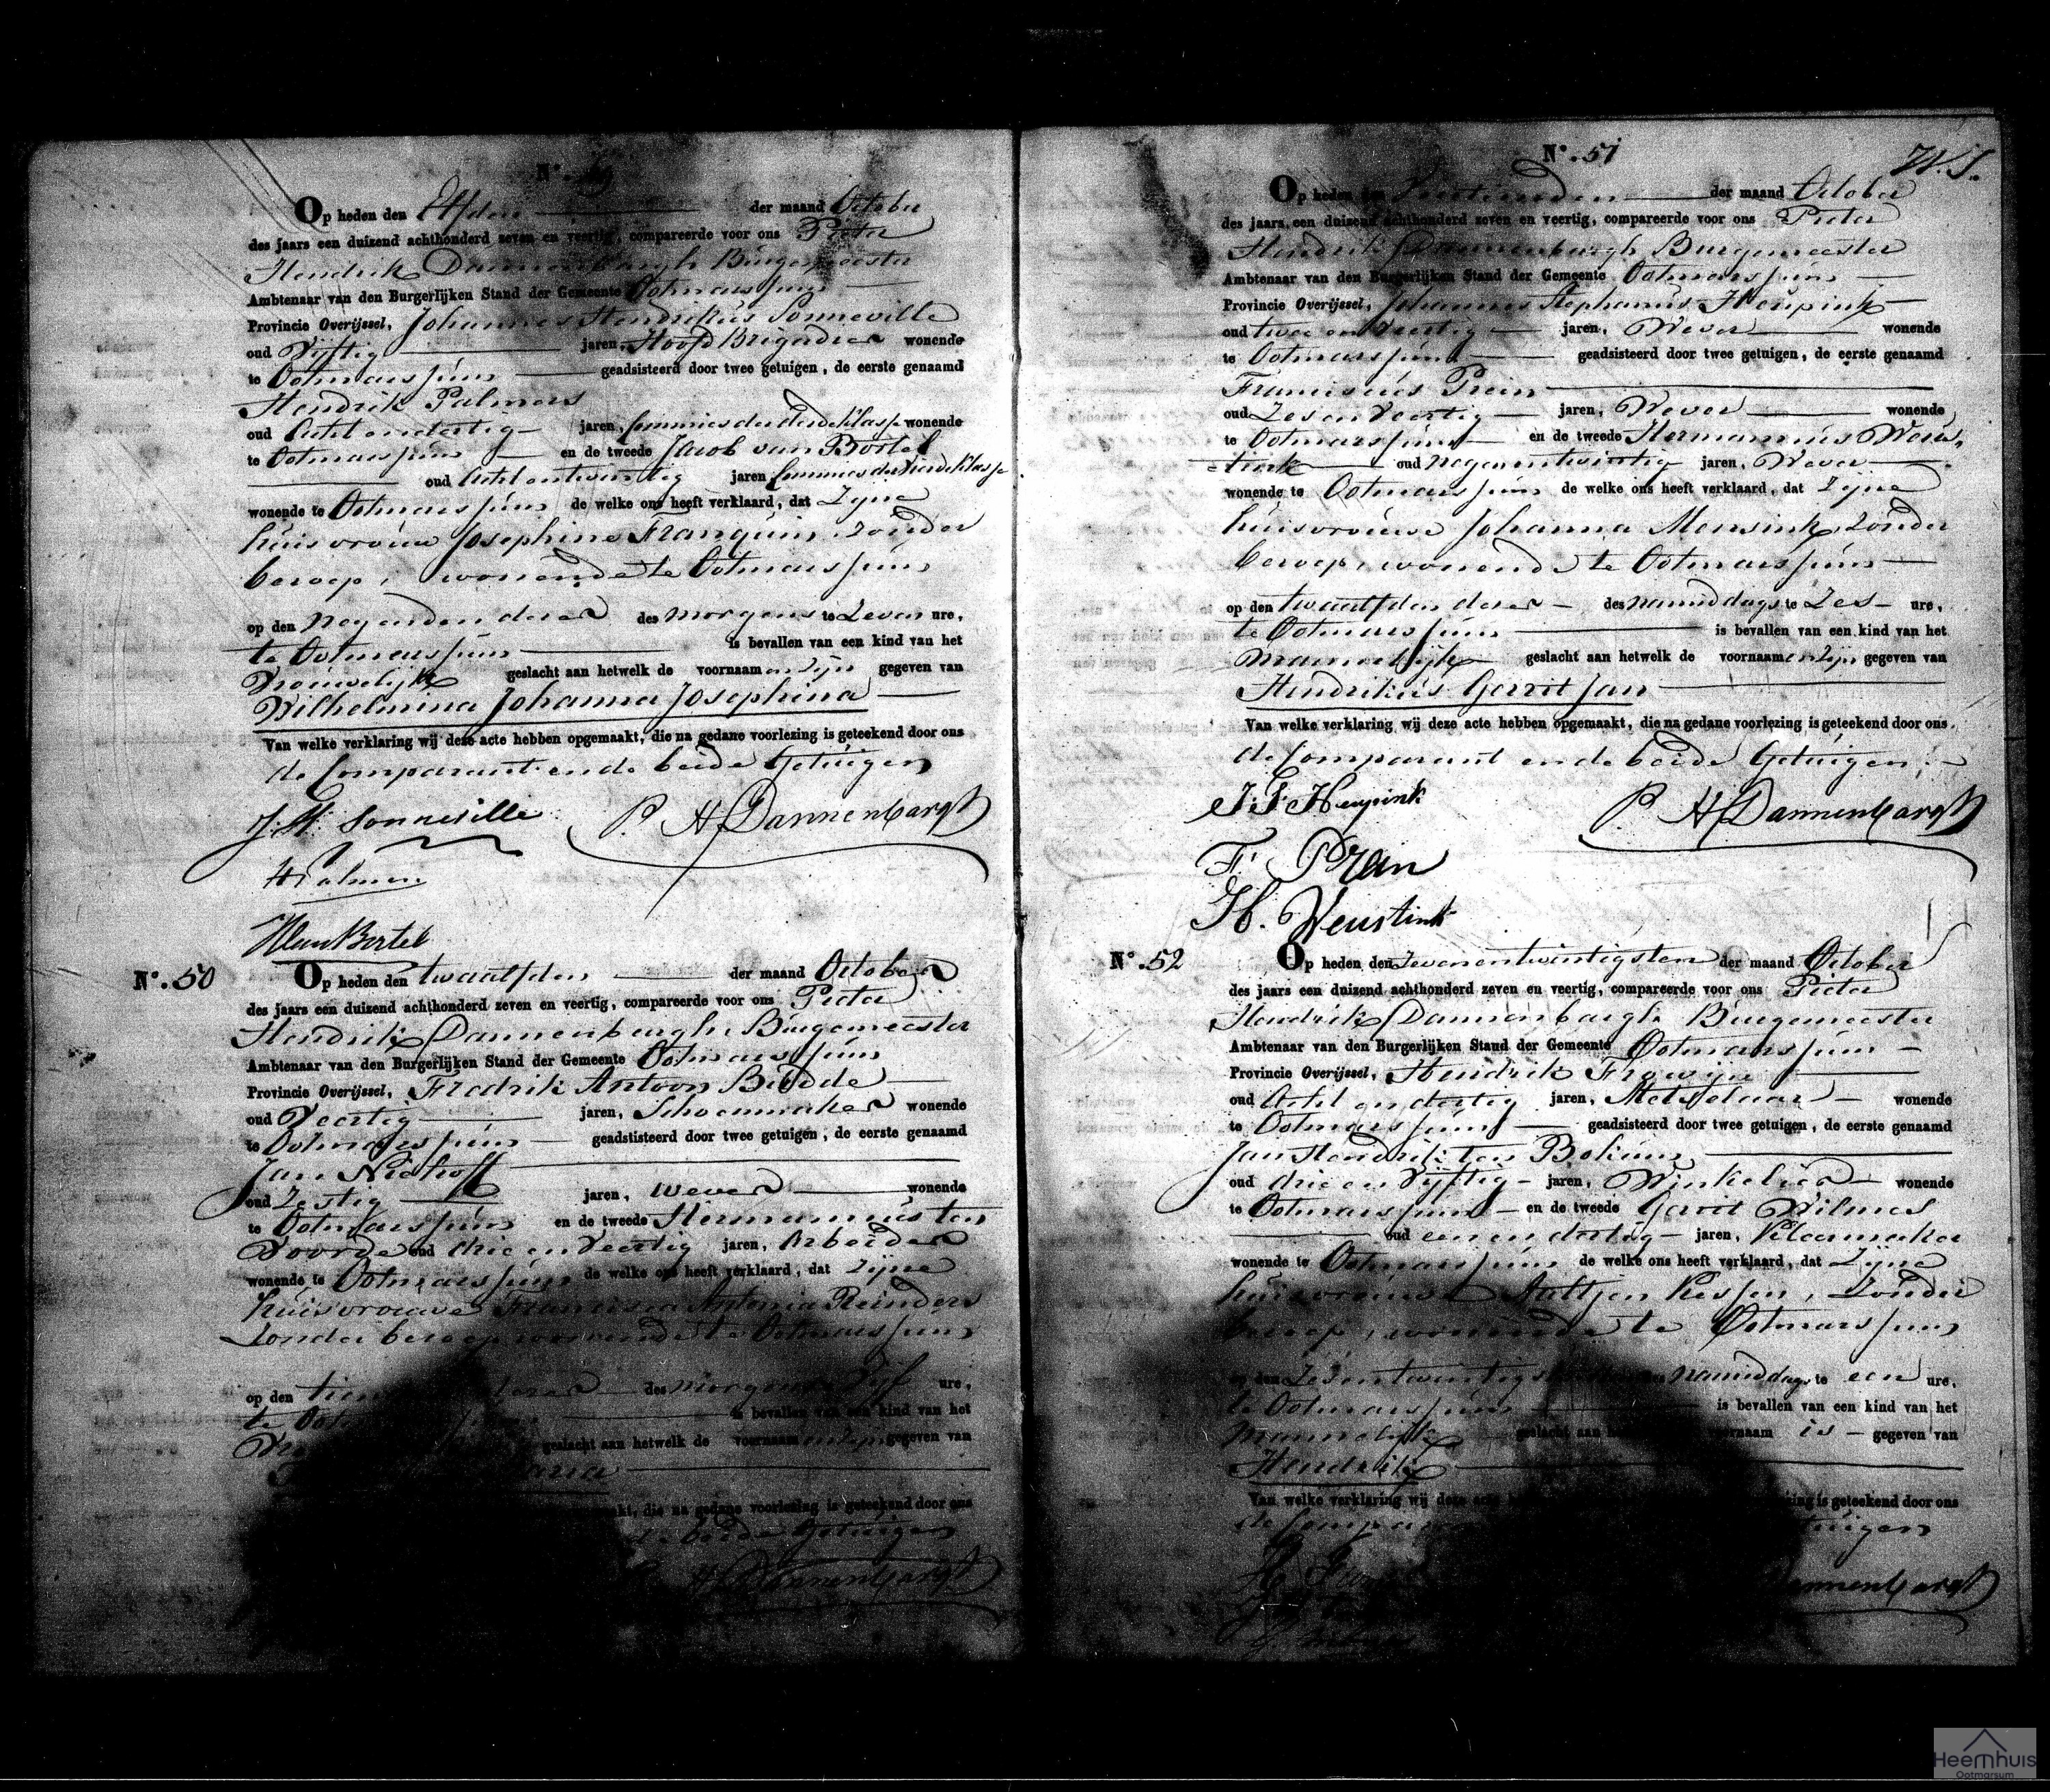 N°. 49
Op heden den Elfden der maand October
des jaars een duizend achthonderd zeven en veertig, compareerde voor ons Pieter
Hendrik Dannenbargh Burgemeester
Ambtenaar van den Burgerlijken Stand der Gemeente Ootmarssum
Provincie Overijssel, Johannes Hendrikus Sonneville
oud Vijftig jaren, Hoofd Brigadier wonende
te Ootmarssum geadsisteerd door twee getuigen, de eerste genaamd
Hendrik Palmers
oud Acht en dertig jaren, Commies der derde klasse wonende
te Ootmarssum en de tweede Jacob van Bortel
oud Acht en twintig jaren Commies der vierde klasse
wonende te Ootmarssum de welke ons heeft verklaard, dat Zijne
huisvrouw Josephine Franquin Zonder
beroep, wonende te Ootmarssum
op den negenden dezer des morgens te Zeven ure,
te Ootmarssum is bevallen van een kind van het
Vrouwelijk geslacht aan hetwelk de voornaamen zijn gegeven van
Wilhelmina Johanna Josephina
Van welke verklaring wij deze acte hebben opgemaakt, die na gedane voorlezing is geteekend door ons
de Comparant en de beide Getuigen
J. H. Sonneville P. H Dannenbargh
H Palmers
van Bortel
N°. 50
Op heden den twaalfden der maand October
des jaars een duizend achthonderd zeven en veertig, compareerde voor ons Pieter
Hendrik Dannenbargh Burgemeester
Ambtenaar van den Burgerlijken Stand der Gemeente Ootmarssum
Provincie Overijssel, Fredrik Antoon Budde
oud Veertig jaren, Schoenmaker wonende
te Ootmarssum geadsisteerd door twee getuigen, de eerste genaamd
Jan Niehoff
oud Zestig jaren, wever wonende
te Ootmarssum en de tweede Hermannus ten
Voorde oud drie en Veertig jaren, Arbeider
wonende te Ootmarssum de welke ons heeft verklaard, dat zijne
huisvrouwe Francisca Antonia Reinders
Zonder beroep wonende te Ootmarssum
op den dezer des morgens Vijf ure,
te is bevallen van een kind van het
geslacht aan hetwelk de voornaamen zijn gegeven van
Maria
die na gedane voorlezing is geteekend door ons
beide Getuigen
H Dannenbargh
N°. 51
Op heden den Veertienden der maand October
des jaars een duizend achthonderd zeven en veertig, compareerde voor ons Pieter
Hendrik Dannenbargh Burgemeester
Ambtenaar van den Burgerlijken Stand der Gemeente Ootmarssum
Provincie Overijssel, Johannes Stephanus Heupink
oud twee en Veertig jaren, Wever wonende
te Ootmarssum geadsisteerd door twee getuigen, de eerste genaamd
Franciscus Prein
oud Zes en Veertig jaren, Wever wonende
te Ootmarssum en de tweede Hermannus Weus-
tink oud negen en twintig jaren, Wever
wonende te Ootmarssum de welke ons heeft verklaard, dat Zijne
huisvrouwe Johanna Mensink, Zonder
beroep, wonende te Ootmarssum
op den twaalfden dezer des namiddags te Zes ure,
te Ootmarssum is bevallen van een kind van het
Mannelijk geslacht aan hetwelk de voornaamen zijn gegeven van
Hendrikus Gerrit Jan
Van welke verklaring wij deze acte hebben opgemaakt, die na gedane voorlezing is geteekend door ons
de Comparant en de beide Getuigen
J. S. Heupink P. H Dannenbargh
F. Prein
H. Weustink
N°. 52
Op heden den Zevenentwintigsten der maand October
des jaars een duizend achthonderd zeven en veertig, compareerde voor ons Pieter
Hendrik Dannenbargh Burgemeester
Ambtenaar van den Burgerlijken Stand der Gemeente Ootmarssum
Provincie Overijssel, Hendrik Frowijn
oud Acht en dertig jaren, Metselaar wonende
te Ootmarssum geadsisteerd door twee getuigen, de eerste genaamd
Jan Hendrik ten Bokum
oud drie en Vijftig jaren, Winkelier wonende
te Ootmarssum en de tweede Gerrit Wilmes
oud een en dertig jaren, Kleermaker
wonende te Ootmarssum de welke ons heeft verklaard, dat Zijne
huisvrouwe Aaltjen Kessen, Zonder
beroep, wonende te Ootmarssum
op den Zesentwintigsten namiddags te een ure,
te Ootmarssum is bevallen van een kind van het
Mannelijk geslacht aan voornaam is gegeven van
Hendrik
Van welke verklaring wij deze acte is geteekend door ons
de Getuigen
H Dannenbargh
Heemhuis
Ootmarsum